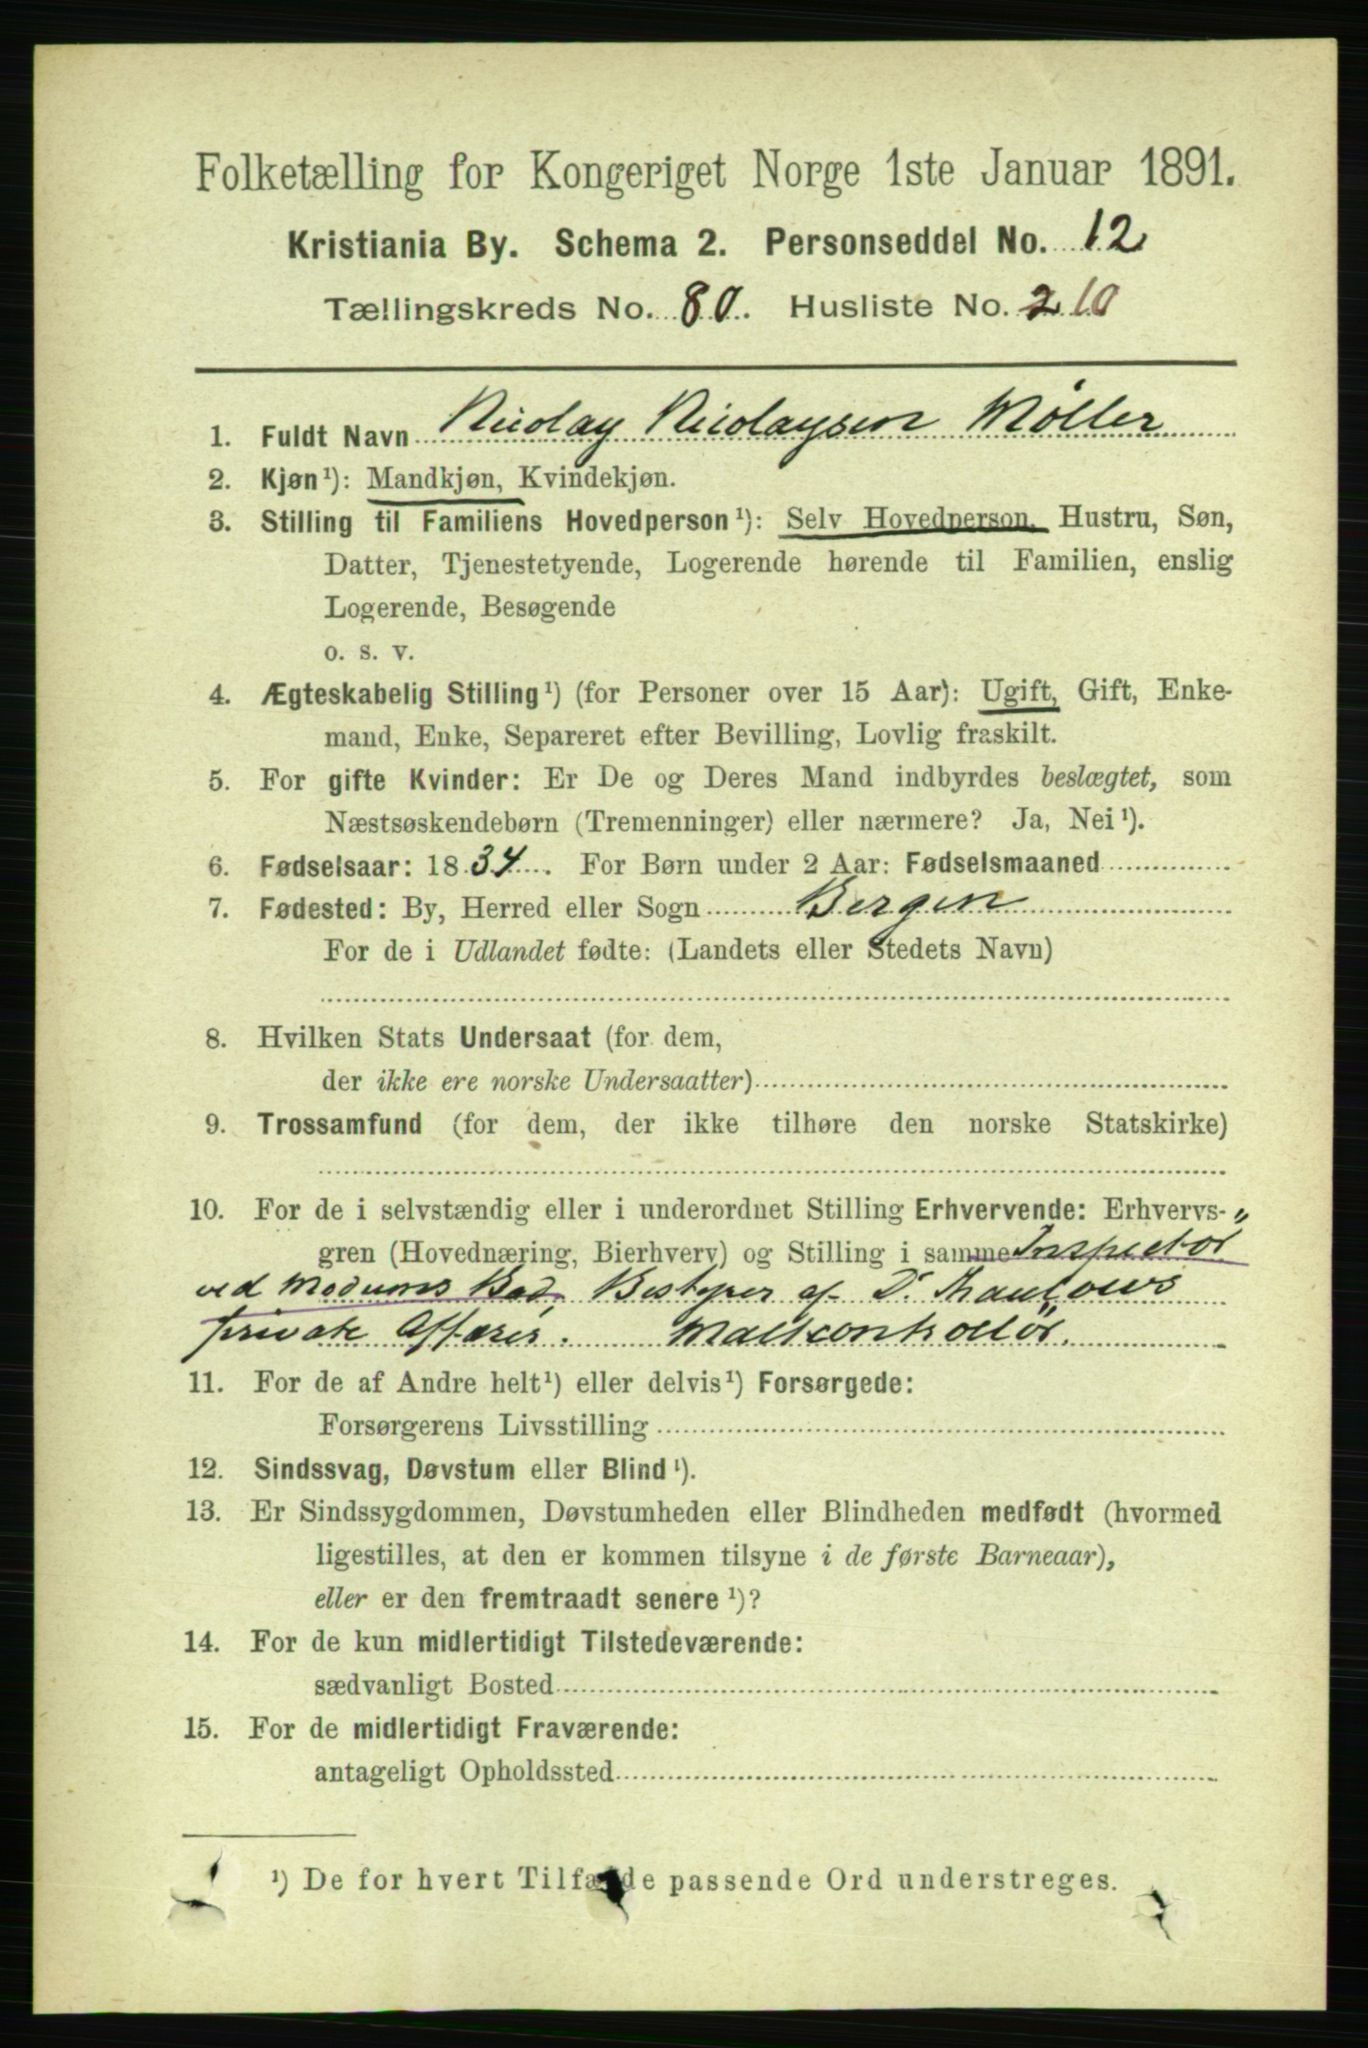 Folketælling for Kongeriget Norge 1ste Januar 1891.
Kristiania By. Schema 2. Personseddel No. 12
Tællingskreds No. 80. Husliste No. 210
1. Fuldt Navn Nicolay Nicolaysen Møller
2. Kjøn¹): Mandkjøn, Kvindekjøn.
3. Stilling til Familiens Hovedperson¹): Selv Hovedperson, Hustru, Søn,
Datter, Tjenestetyende, Logerende hørende til Familien, enslig
Logerende, Besøgende
o. s. v.
4. Ægteskabelig Stilling¹) (for Personer over 15 Aar): Ugift, Gift, Enke-
mand, Enke, Separeret efter Bevilling, Lovlig fraskilt.
5. For gifte Kvinder: Er De og Deres Mand indbyrdes beslægtet, som
Næstsøskendebørn (Tremenninger) eller nærmere? Ja, Nei¹).
6. Fødselsaar: 1834. For Børn under 2 Aar: Fødselsmaaned
7. Fødested: By, Herred eller Sogn Bergen
For de i Udlandet fødte: (Landets eller Stedets Navn)
8. Hvilken Stats Undersaat (for dem,
der ikke ere norske Undersaatter)
9. Trossamfund (for dem, der ikke tilhøre den norske Statskirke)
10. For de i selvstændig eller i underordnet Stilling Erhvervende: Erhvervs-
gren (Hovednæring, Bierhverv) og Stilling i samme Inspectør
ved Modums Bad, Bestyrer af Dr Thaulows
private Affærer. Maltcontrollør.
11. For de af Andre helt¹) eller delvis¹) Forsørgede:
Forsørgerens Livsstilling
12. Sindssvag, Døvstum eller Blind¹).
13. Er Sindssygdommen, Døvstumheden eller Blindheden medfødt (hvormed
ligestilles, at den er kommen tilsyne i de første Barneaar),
eller er den fremtraadt senere¹)?
14. For de kun midlertidigt Tilstedeværende:
sædvanligt Bosted
15. For de midlertidigt Fraværende:
antageligt Opholdssted
¹) De for hvert Tilfælde passende Ord understreges.